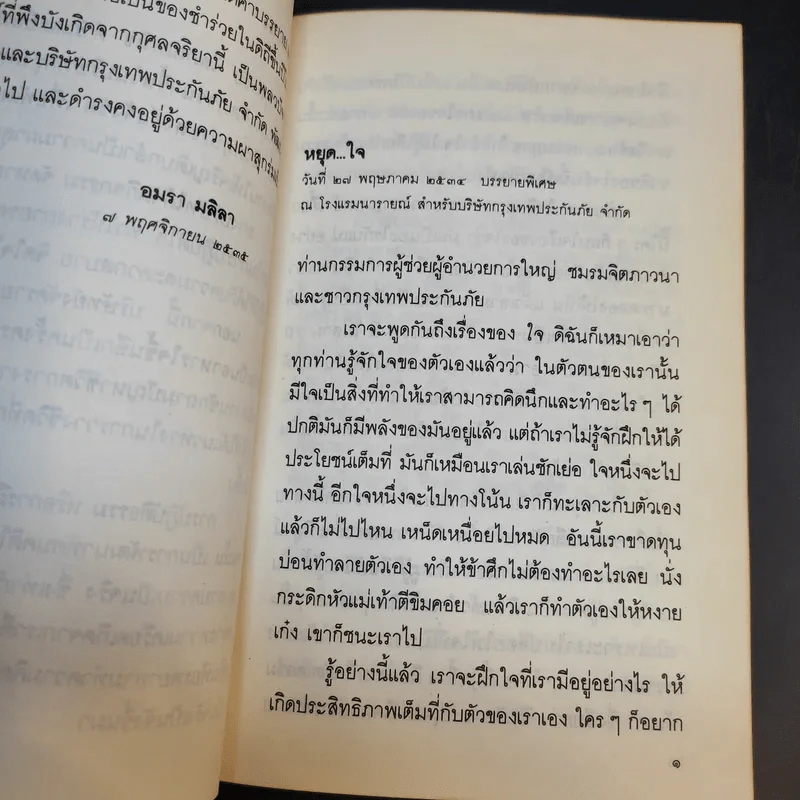 คำบรรยาย
เป็นของชำร่วยในดิถีขึ้นปี
ที่พึงบังเกิดจากกุศลจริยานี้ เป็นพลวปัจ
และบริษัทกรุงเทพประกันภัย จำกัด
ไป และดำรงคงอยู่ด้วยความผาสุกร่มเย็น
อมรา มลิลา
๗ พฤศจิกายน ๒๕๓๕
หยุด...ใจ
วันที่ ๒๗ พฤษภาคม ๒๕๓๔ บรรยายพิเศษ
ณ โรงแรมนารายณ์ สำหรับบริษัทกรุงเทพประกันภัย จำกัด
ท่านกรรมการผู้ช่วยผู้อำนวยการใหญ่ ชมรมจิตภาวนา
และชาวกรุงเทพประกันภัย
เราจะพูดกันถึงเรื่องของ ใจ ดิฉันก็เหมาเอาว่า
ทุกท่านรู้จักใจของตัวเองแล้วว่า ในตัวตนของเรานั้น
มีใจเป็นสิ่งที่ทำให้เราสามารถคิดนึกและทำอะไร ๆ ได้
ปกติมันก็มีพลังของมันอยู่แล้ว แต่ถ้าเราไม่รู้จักฝึกให้ได้
ประโยชน์เต็มที่ มันก็เหมือนเราเล่นชักเย่อ ใจหนึ่งจะไป
ทางนี้ อีกใจหนึ่งจะไปทางโน้น เราก็ทะเลาะกับตัวเอง
แล้วก็ไม่ไปไหน เหน็ดเหนื่อยไปหมด อันนี้เราขาดทุน
บ่อนทำลายตัวเอง ทำให้ข้าศึกไม่ต้องทำอะไรเลย นั่ง
กระดิกหัวแม่เท้าตีขิมคอย แล้วเราก็ทำตัวเองให้หงาย
เก๋ง เขาก็ชนะเราไป
รู้อย่างนี้แล้ว เราจะฝึกใจที่เรามีอยู่อย่างไร ให้
เกิดประสิทธิภาพเต็มที่กับตัวของเราเอง ใคร ๆ ก็อยาก
๑